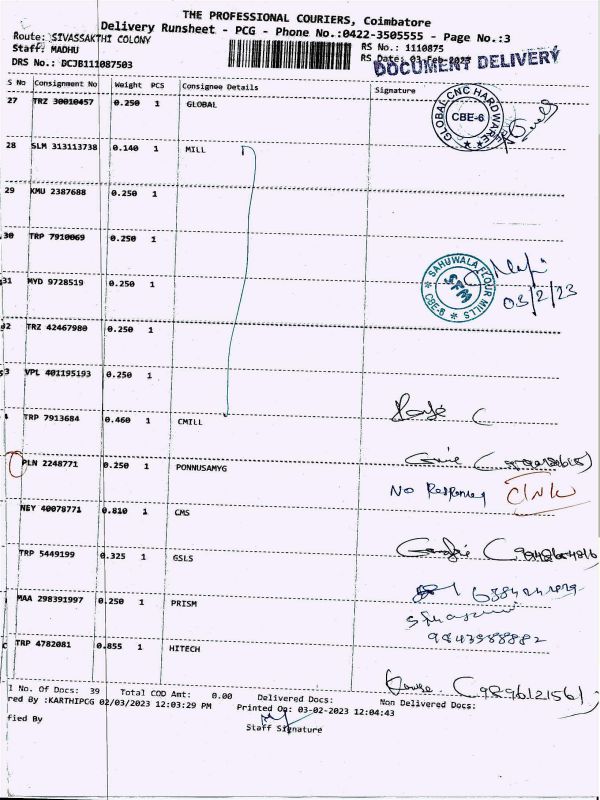 THE PROFESSIONAL COURIERS, Coimbatore
Delivery Runsheet - PCG - Phone No.:0422-3505555 - Page No.:3
Route: SIVASSAKTHI COLONY RS No.: 1110875
Staff: MADHU RS Date: 03-Feb-2023
DOCUMENT DELIVERY
DRS No.: DCJB111087503
S No Consignment No Weight PCS Consignee Details Signature
27 TRZ 30010457 0.250 1 GLOBAL
GLOBAL CNC HARDWARE CBE-6
28 SLM 313113738 0.140 1 MILL
29 KMU 2387688 0.250 1
30 TRP 7910069 0.250 1
SAHUWALA FLOUR MILLS CBE-6 SFM
31 MYD 9728519 0.250 1
03/2/23
32 TRZ 42467980 0.250 1
3 VPL 401195193 0.250 1
4 TRP 7913684 0.460 1 CMILL
PLN 2248771 0.250 1 PONNUSAMYG
No Response
NEY 40078771 0.810 1 CMS
TRP 5449199 0.325 1 GSLS
MAA 298391997 0.250 1 PRISM
9843988882
TRP 4782081 0.855 1 HITECH
(9896121561)
l No. Of Docs: 39 Total COD Amt: 0.00 Delivered Docs: Non Delivered Docs:
red By :KARTHIPCG 02/03/2023 12:03:29 PM Printed On: 03-02-2023 12:04:43
fied By Staff Signature